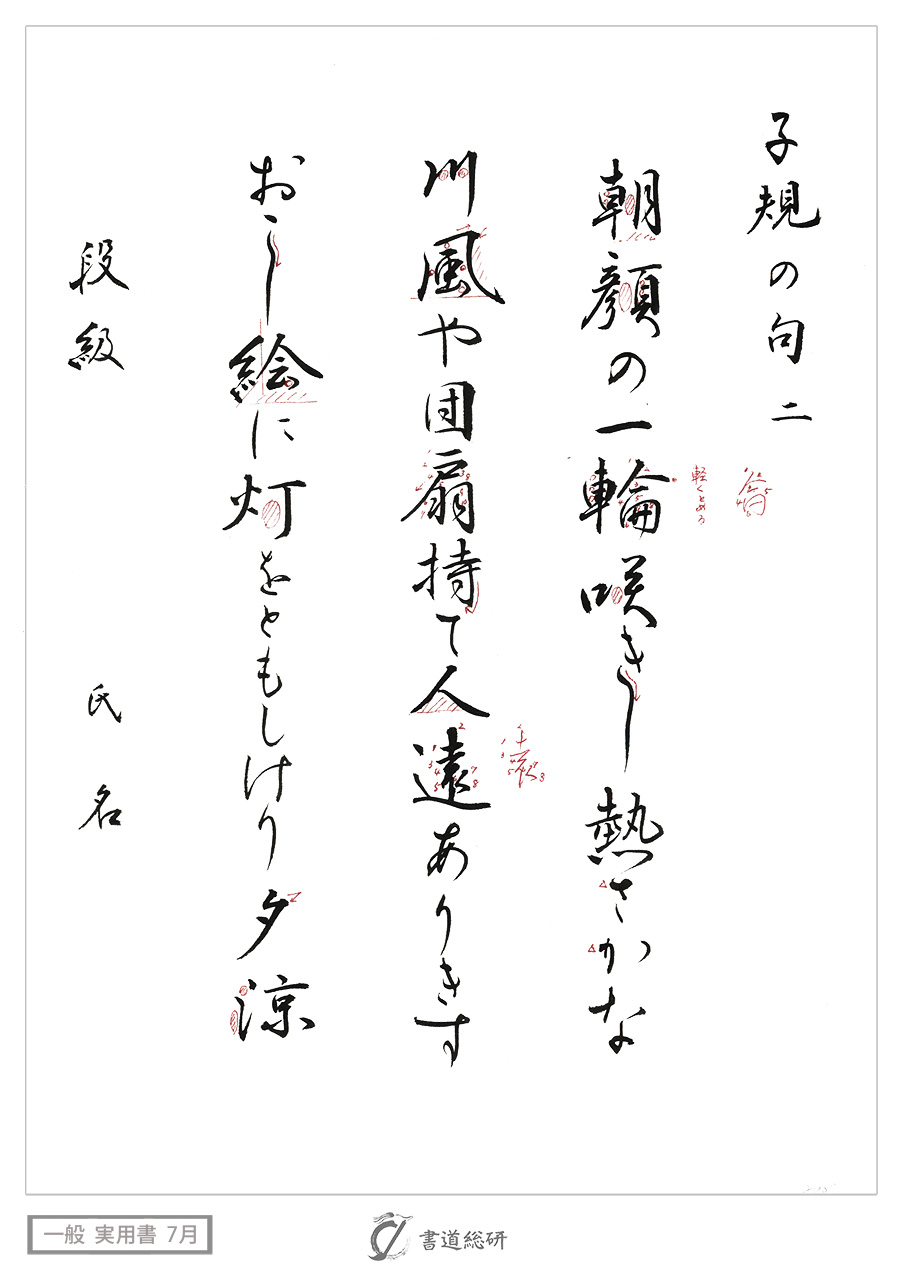 子規の句二
朝顔の一輪咲きし熱さかな
軽くとめる
川風や団扇持て人遠ありきす
おこし絵に灯をともしけり夕涼
段級 氏名
一般 実用書 7月
書道総研